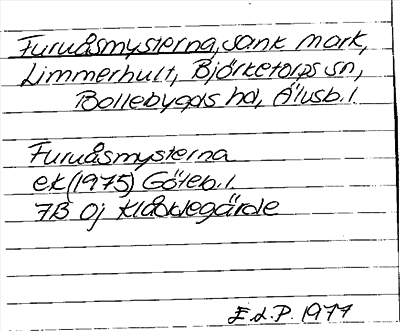 Furuåsmysterna, sank mark,
Limmerhult, Björketorps sn,
Bollebygds hd, Älvsb. l.
Furuåsmysterna
ek (1975) Göteb. l.
7B 0j Klåddegärde
E d. P. 1977